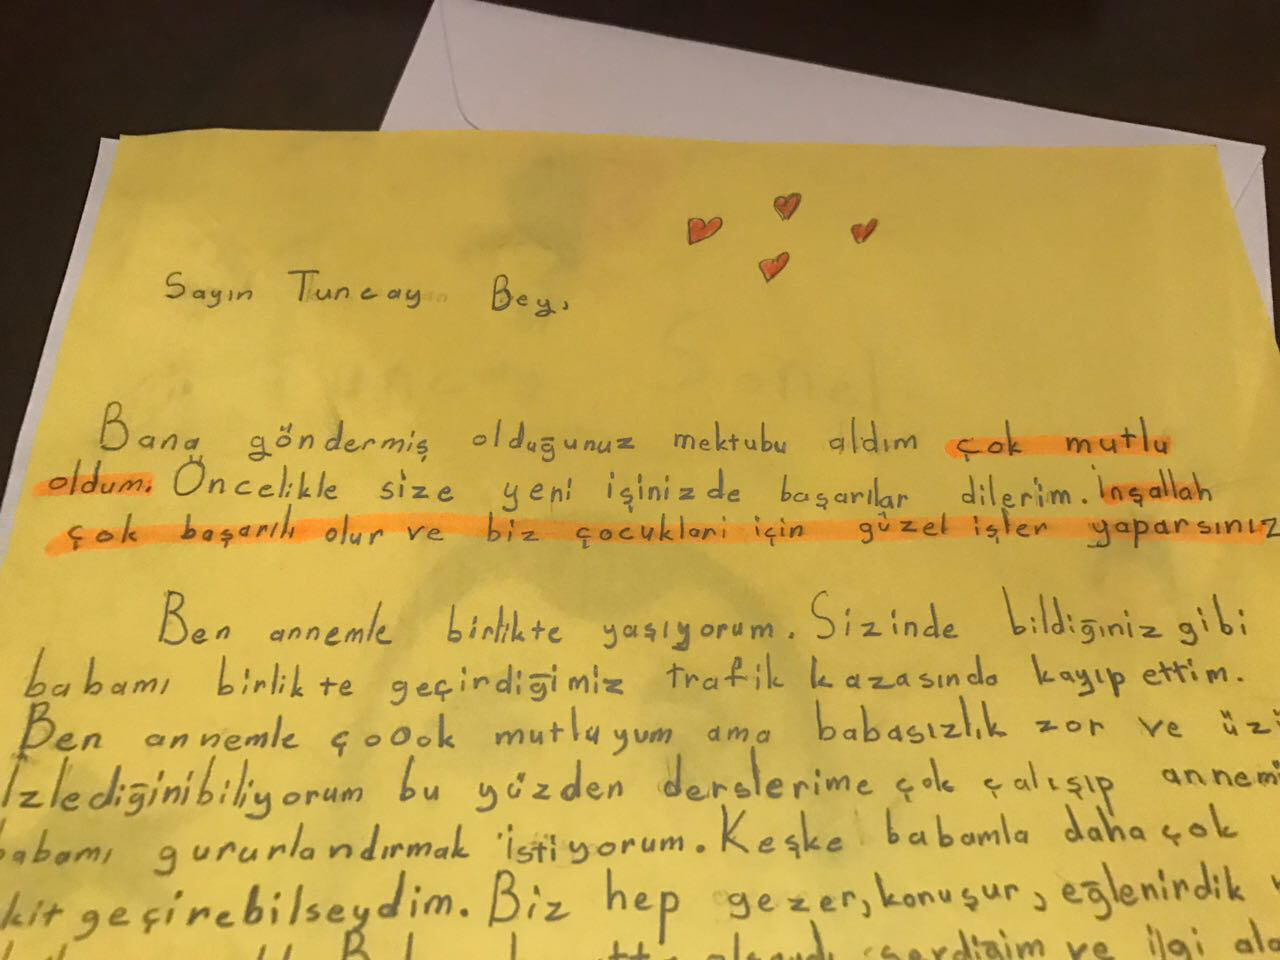 Sayın Tuncay Bey,
Bana göndermiş olduğunuz mektubu aldım çok mutlu
oldum. Öncelikle size yeni işinizde başarılar dilerim. İnşallah
çok başarılı olur ve biz çocuklari için güzel işler yaparsınız
Ben annemle birlikte yaşıyorum. Sizinde bildiğiniz gibi
babamı birlikte geçirdiğimiz trafik kazasında kayıp ettim.
Ben annemle çoOok mutluyum ama babasızlık zor ve
İzlediğinibiliyorum bu yüzden derslerime çok çalışıp
babamı gururlandırmak istiyorum. Keşke babamla daha çok
geçirebilseydim. Biz hep gezer, konuşur, eğlenirdik
ve ilgi